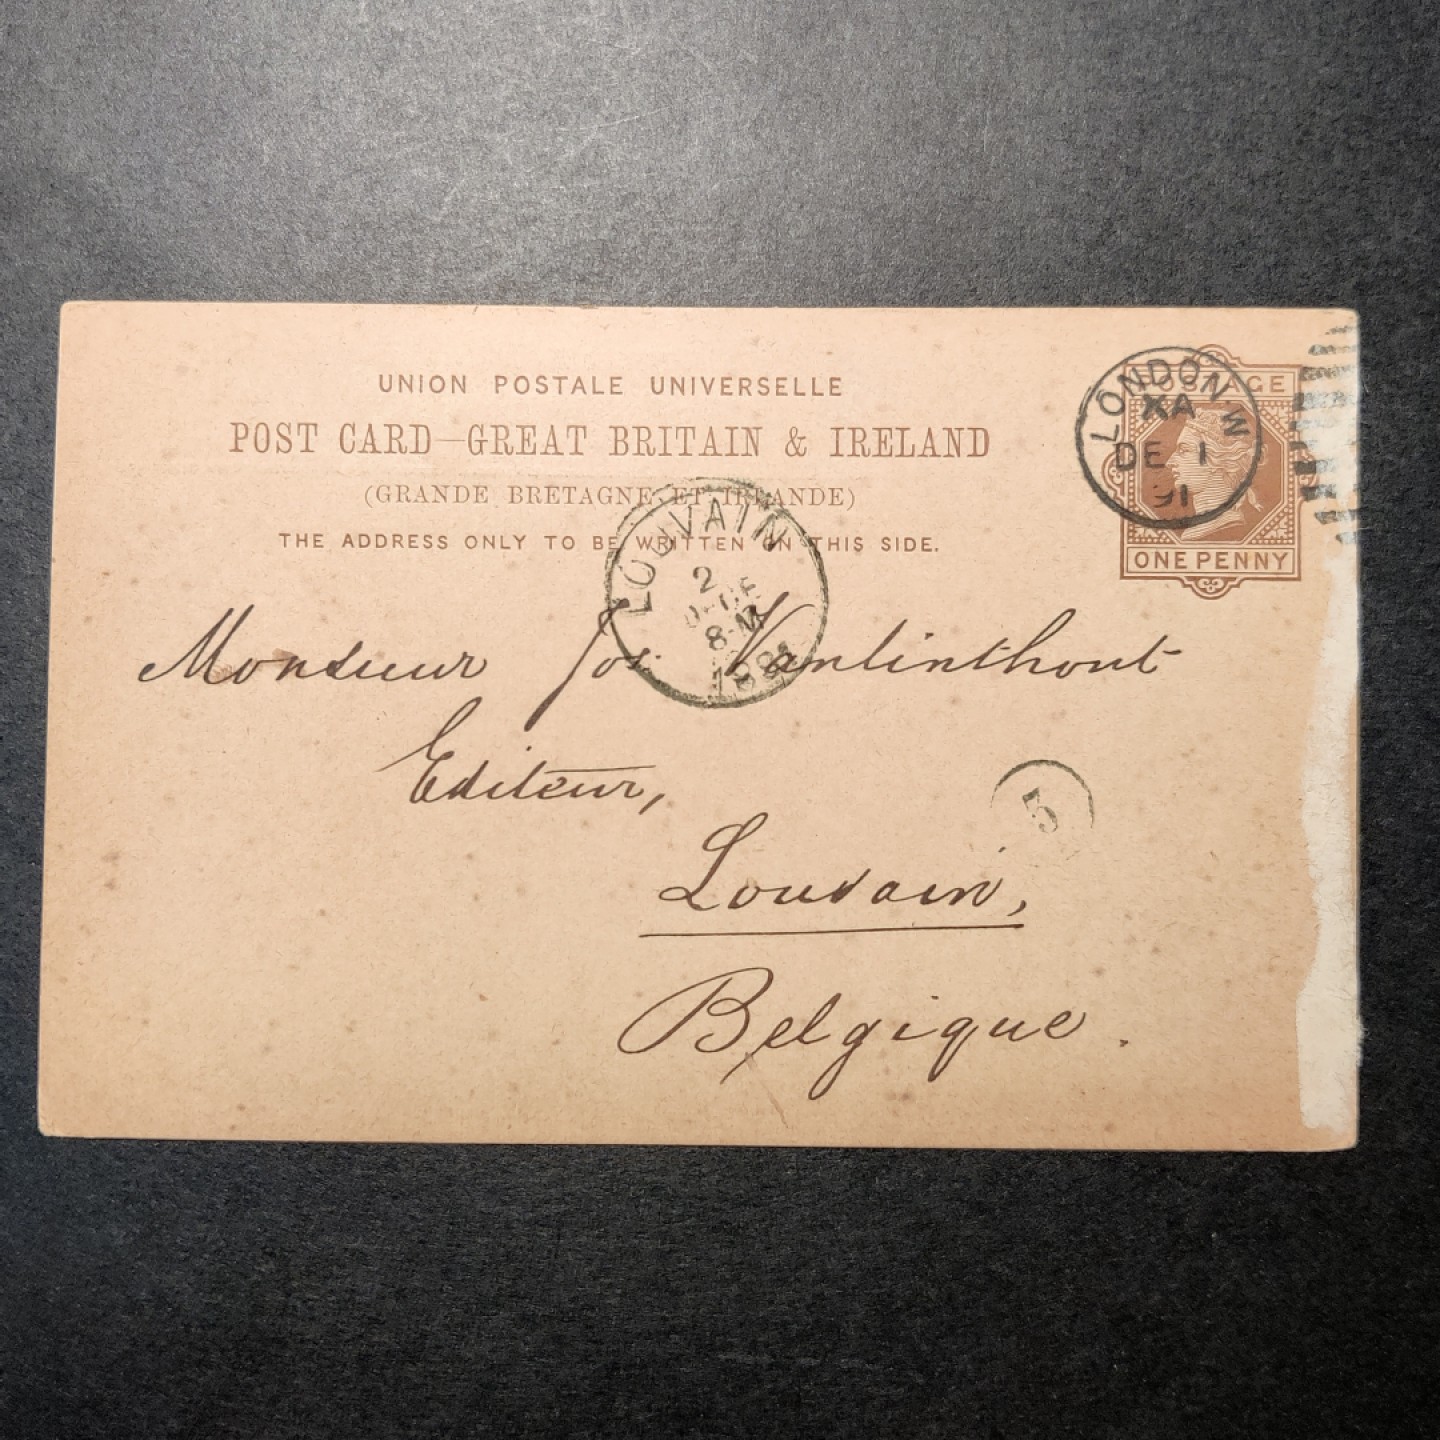 UNION POSTALE UNIVERSELLE
POST CARD—GREAT BRITAIN & IRELAND
(GRANDE BRETAGNE ET IRLANDE)
THE ADDRESS ONLY TO BE WRITTEN ON THIS SIDE.
POSTAGE
ONE PENNY
LONDON W
XA
DE 1
91
LOUVAIN
2
DECE
8-M
1891
Monsieur Jos. Vanlinthout
Editeur,
5
Louvain,
Belgique.